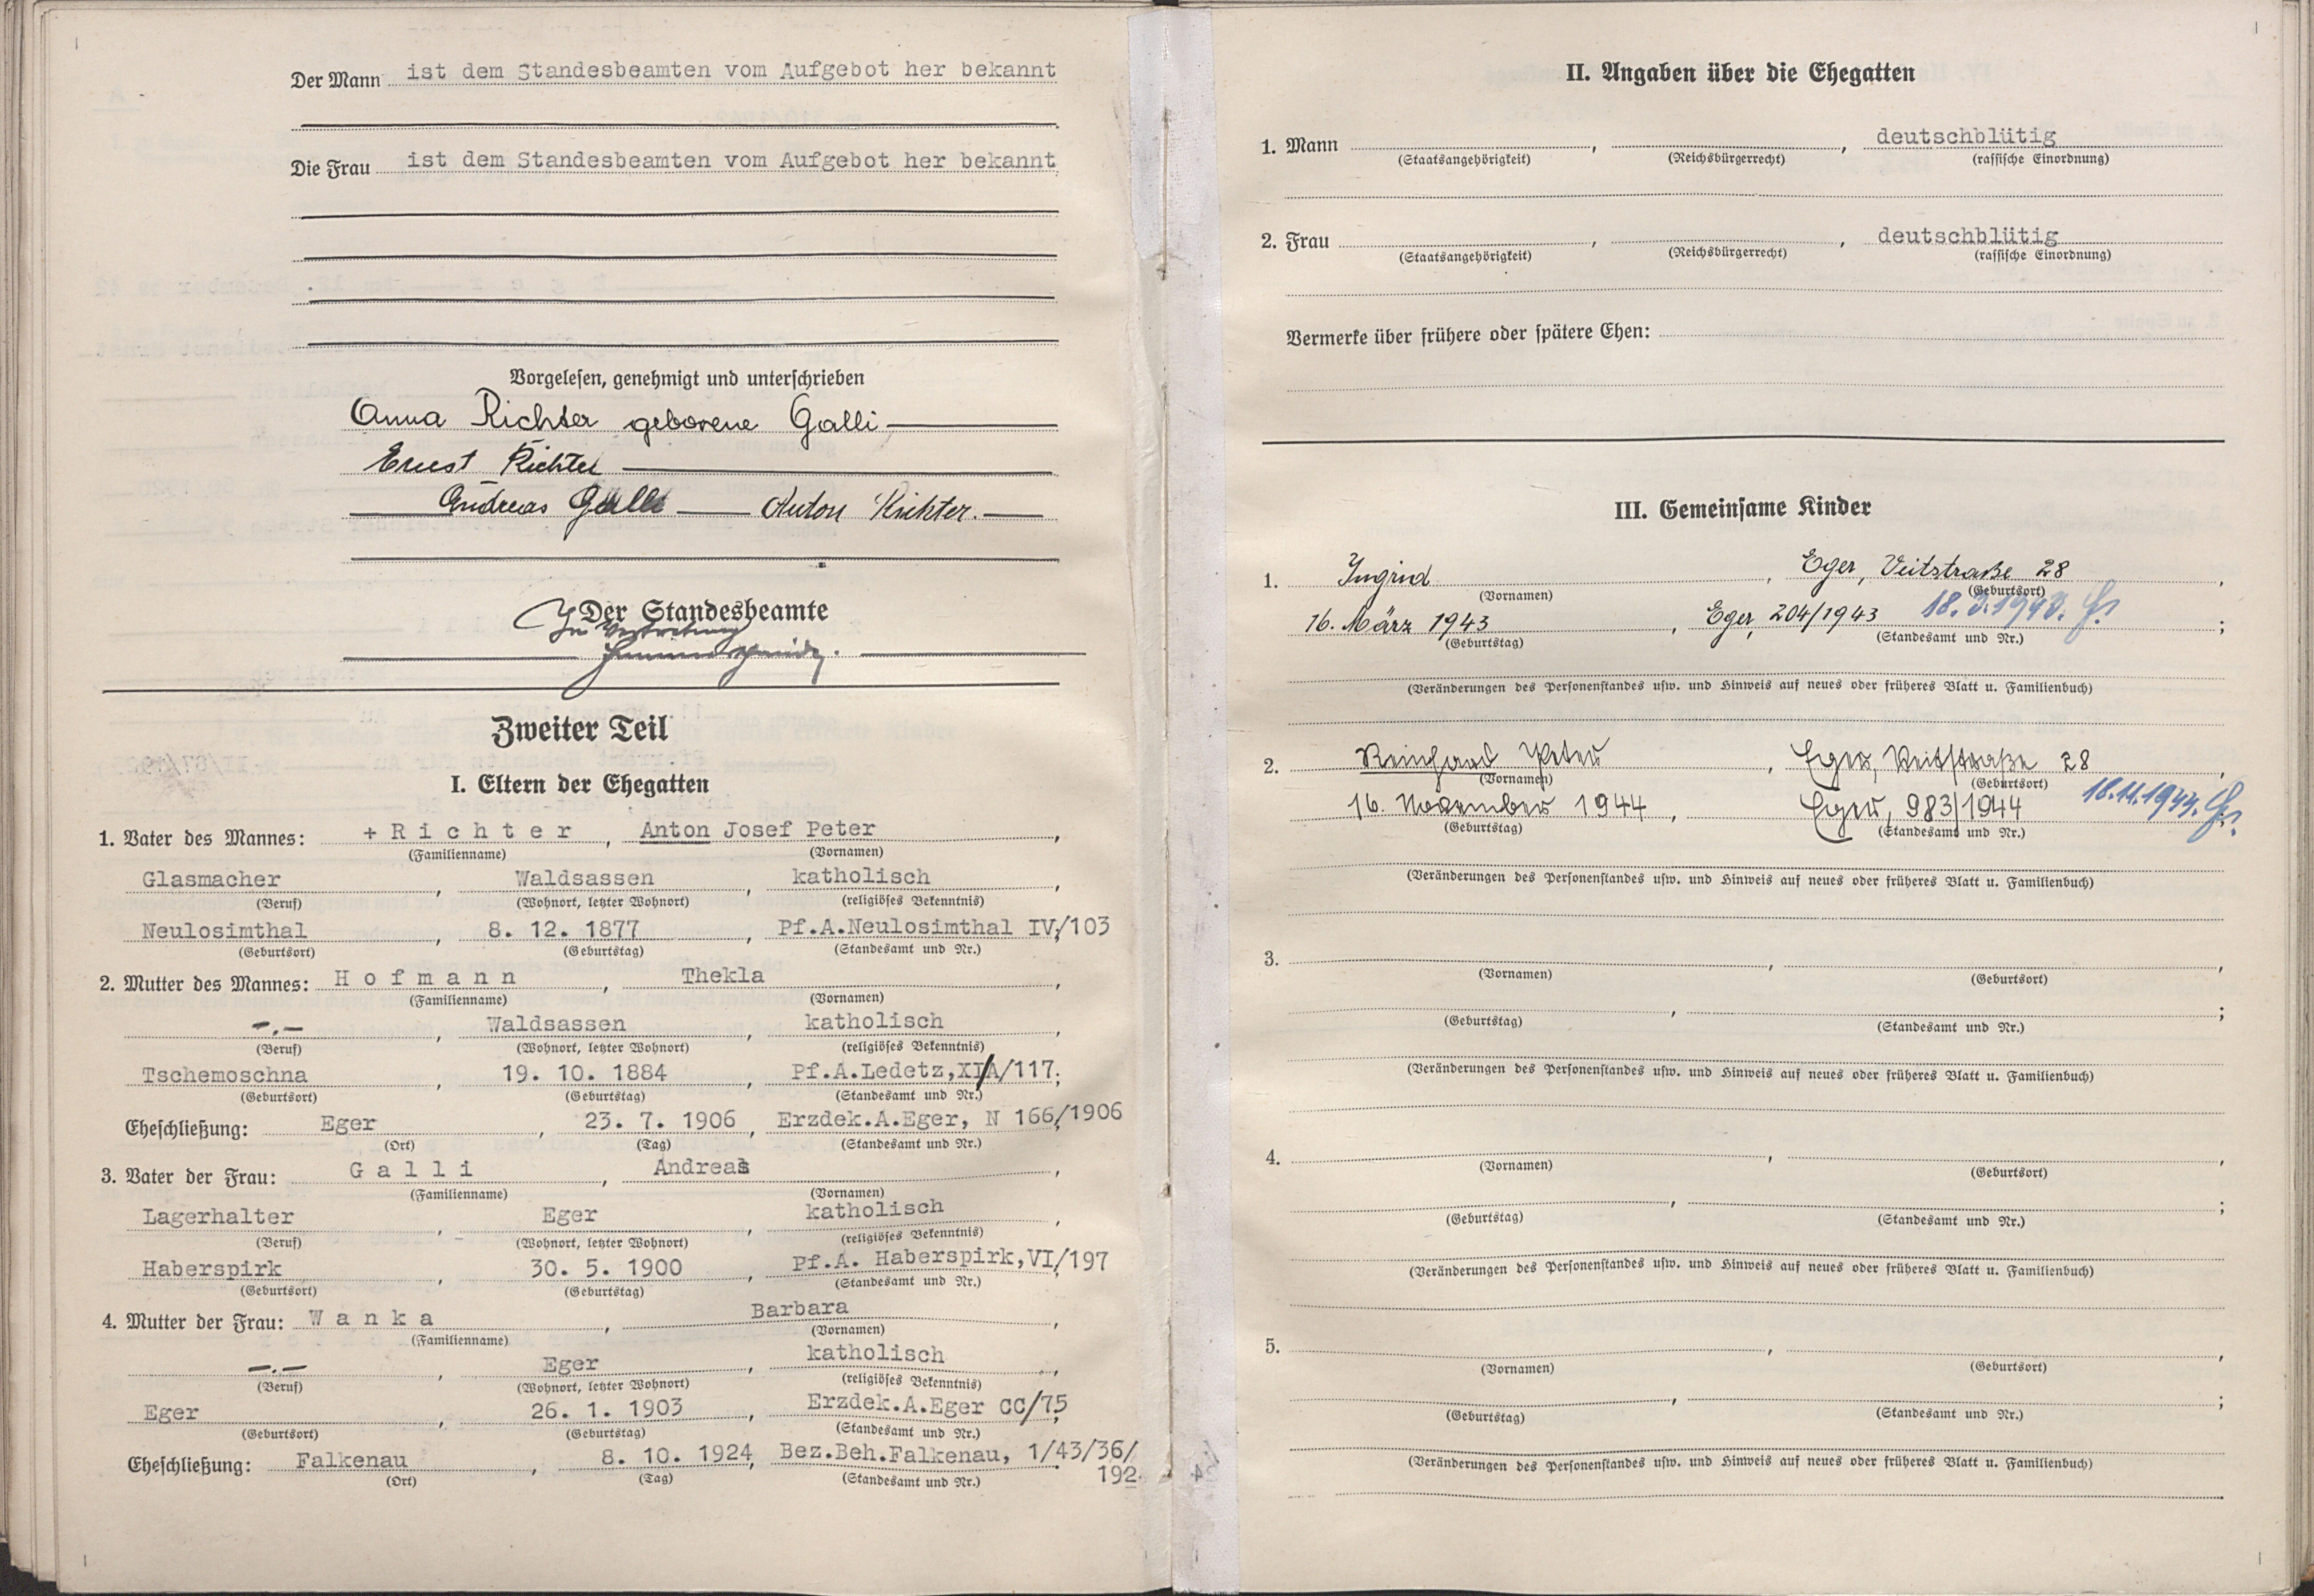 Der Mann ist dem Standesbeamten vom Aufgebot her bekannt
Die Frau ist dem Standesbeamten vom Aufgebot her bekannt
Vorgelesen, genehmigt und unterschrieben
Anna Richter geborene Galli
Ernst Richter
Andreas Galli Anton Richter.
Der Standesbeamte
In Vertretung
Zweiter Teil
I. Eltern der Ehegatten
1. Vater des Mannes: + Richter, Anton Josef Peter,
(Familienname) (Vornamen)
Glasmacher, Waldsassen, katholisch,
(Beruf) (Wohnort, letzter Wohnort) (religiöses Bekenntnis)
Neulosimthal, 8. 12. 1877, Pf.A.Neulosimthal IV/103;
(Geburtsort) (Geburtstag) (Standesamt und Nr.)
2. Mutter des Mannes: Hofmann, Thekla,
(Familienname) (Vornamen)
-.-, Waldsassen, katholisch,
(Beruf) (Wohnort, letzter Wohnort) (religiöses Bekenntnis)
Tschemoschna, 19. 10. 1884, Pf.A.Ledetz,XI/A/117;
(Geburtsort) (Geburtstag) (Standesamt und Nr.)
Eheschließung: Eger, 23. 7. 1906, Erzdek.A.Eger, N 166/1906
(Ort) (Tag) (Standesamt und Nr.)
3. Vater der Frau: Galli, Andreas,
(Familienname) (Vornamen)
Lagerhalter, Eger, katholisch,
(Beruf) (Wohnort, letzter Wohnort) (religiöses Bekenntnis)
Haberspirk, 30. 5. 1900, Pf.A. Haberspirk,VI/197
(Geburtsort) (Geburtstag) (Standesamt und Nr.)
4. Mutter der Frau: Wanka, Barbara,
(Familienname) (Vornamen)
-.-, Eger, katholisch,
(Beruf) (Wohnort, letzter Wohnort) (religiöses Bekenntnis)
Eger, 26. 1. 1903, Erzdek.A.Eger CC/75
(Geburtsort) (Geburtstag) (Standesamt und Nr.)
Eheschließung: Falkenau, 8. 10. 1924, Bez.Beh.Falkenau, 1/43/36/
192
(Ort) (Tag) (Standesamt und Nr.)
II. Angaben über die Ehegatten
1. Mann , , deutschblütig
(Staatsangehörigkeit) (Reichsbürgerrecht) (rassische Einordnung)
2. Frau , , deutschblütig
(Staatsangehörigkeit) (Reichsbürgerrecht) (rassische Einordnung)
Vermerke über frühere oder spätere Ehen:
III. Gemeinsame Kinder
1. Ingrid, Eger, Veitstraße 28,
(Vornamen) (Geburtsort)
16. März 1943, Eger, 204/1943 18.3.1943. ;
(Geburtstag) (Standesamt und Nr.)
(Veränderungen des Personenstandes usw. und Hinweis auf neues oder früheres Blatt u. Familienbuch)
2. Reinhard Peter, Eger, Veitstraße 28,
(Vornamen) (Geburtsort)
16. November 1944, Eger, 983/1944 18.11.1944.
(Geburtstag) (Standesamt und Nr.)
(Veränderungen des Personenstandes usw. und Hinweis auf neues oder früheres Blatt u. Familienbuch)
3. , ,
(Vornamen) (Geburtsort)
, ;
(Geburtstag) (Standesamt und Nr.)
(Veränderungen des Personenstandes usw. und Hinweis auf neues oder früheres Blatt u. Familienbuch)
4. , ,
(Vornamen) (Geburtsort)
, ;
(Geburtstag) (Standesamt und Nr.)
(Veränderungen des Personenstandes usw. und Hinweis auf neues oder früheres Blatt u. Familienbuch)
5. , ,
(Vornamen) (Geburtsort)
, ;
(Geburtstag) (Standesamt und Nr.)
(Veränderungen des Personenstandes usw. und Hinweis auf neues oder früheres Blatt u. Familienbuch)